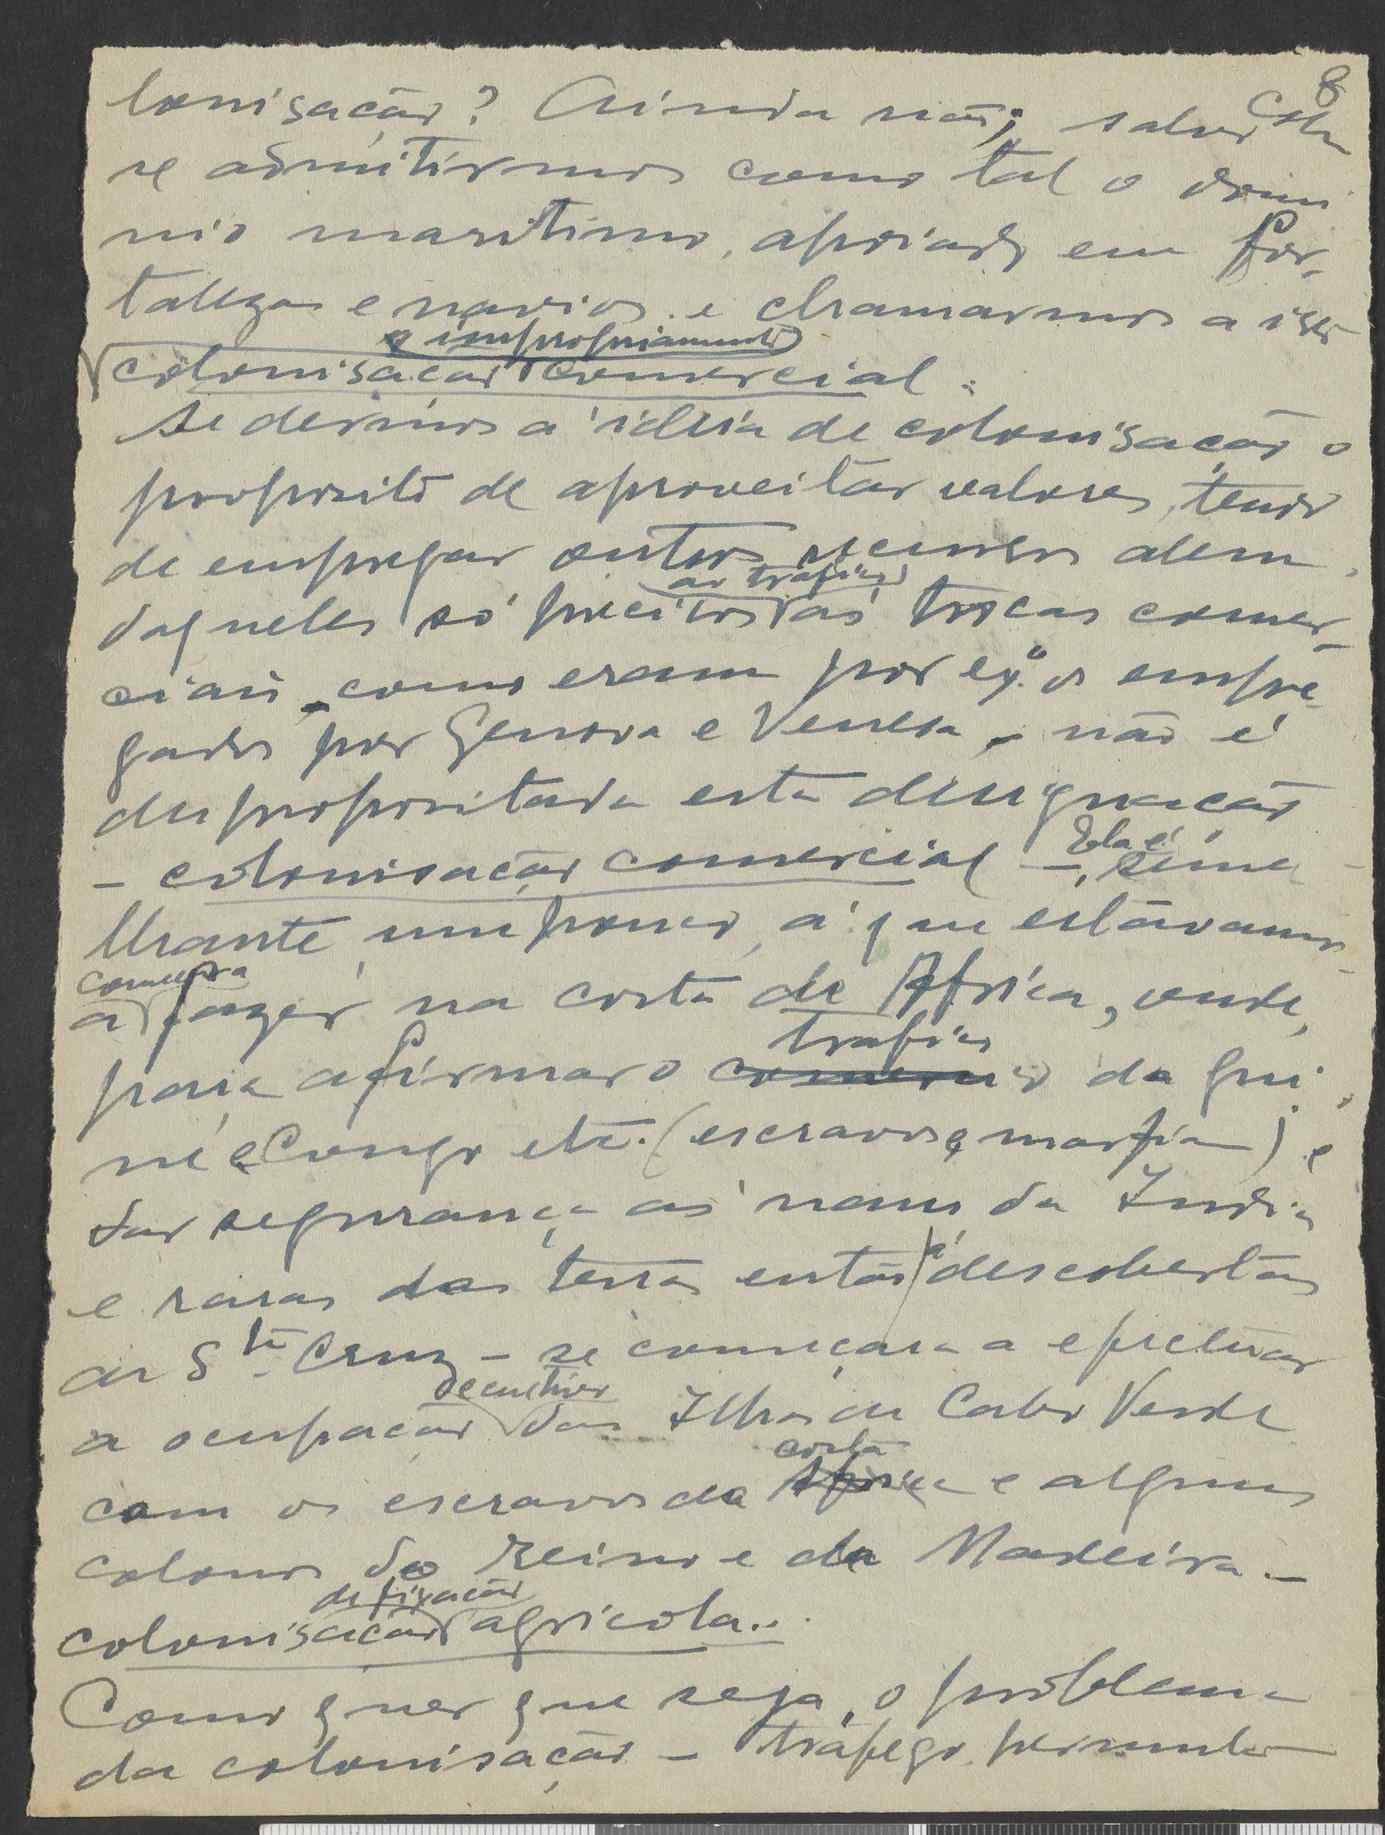 8
lonisação? Ainda não; salvo
se admitirmos como tal o domi
nio maritimo, apoiado em for-
talezas e navios e chamarmos a isto
e impropriamente
colonisação comercial.
Se dermos á idéia de colonisação o
proposito de aproveitar valores, tendo
de empregar outros recursos alem
ao trafico
daqueles só precisos ás trocas comer-
ciais - como eram por exº os empre
gados por Genova e Venesa - não é
despropositada esta designação
- colonisação comercial -, Ela é seme
lhante, um pouco, á que estávamos
comera
a fazer na costa de Africa, onde,
trafico
para afirmar o comercio da Gui
né e Congo etc. (escravos e marfim) e
dar segurança ás naus da India
e raras das terras então já descobertas
de Stª Cruz - se começara a efectuar
de cultivo
a ocupação das Ilhas de Cabo Verde
costa
com os escravos da Africa e alguns
colonos do Reino e da Madeira -
de fixação
colonisação agricola..
Como quer que seja, o problema
da colonisação - tráfego permuta